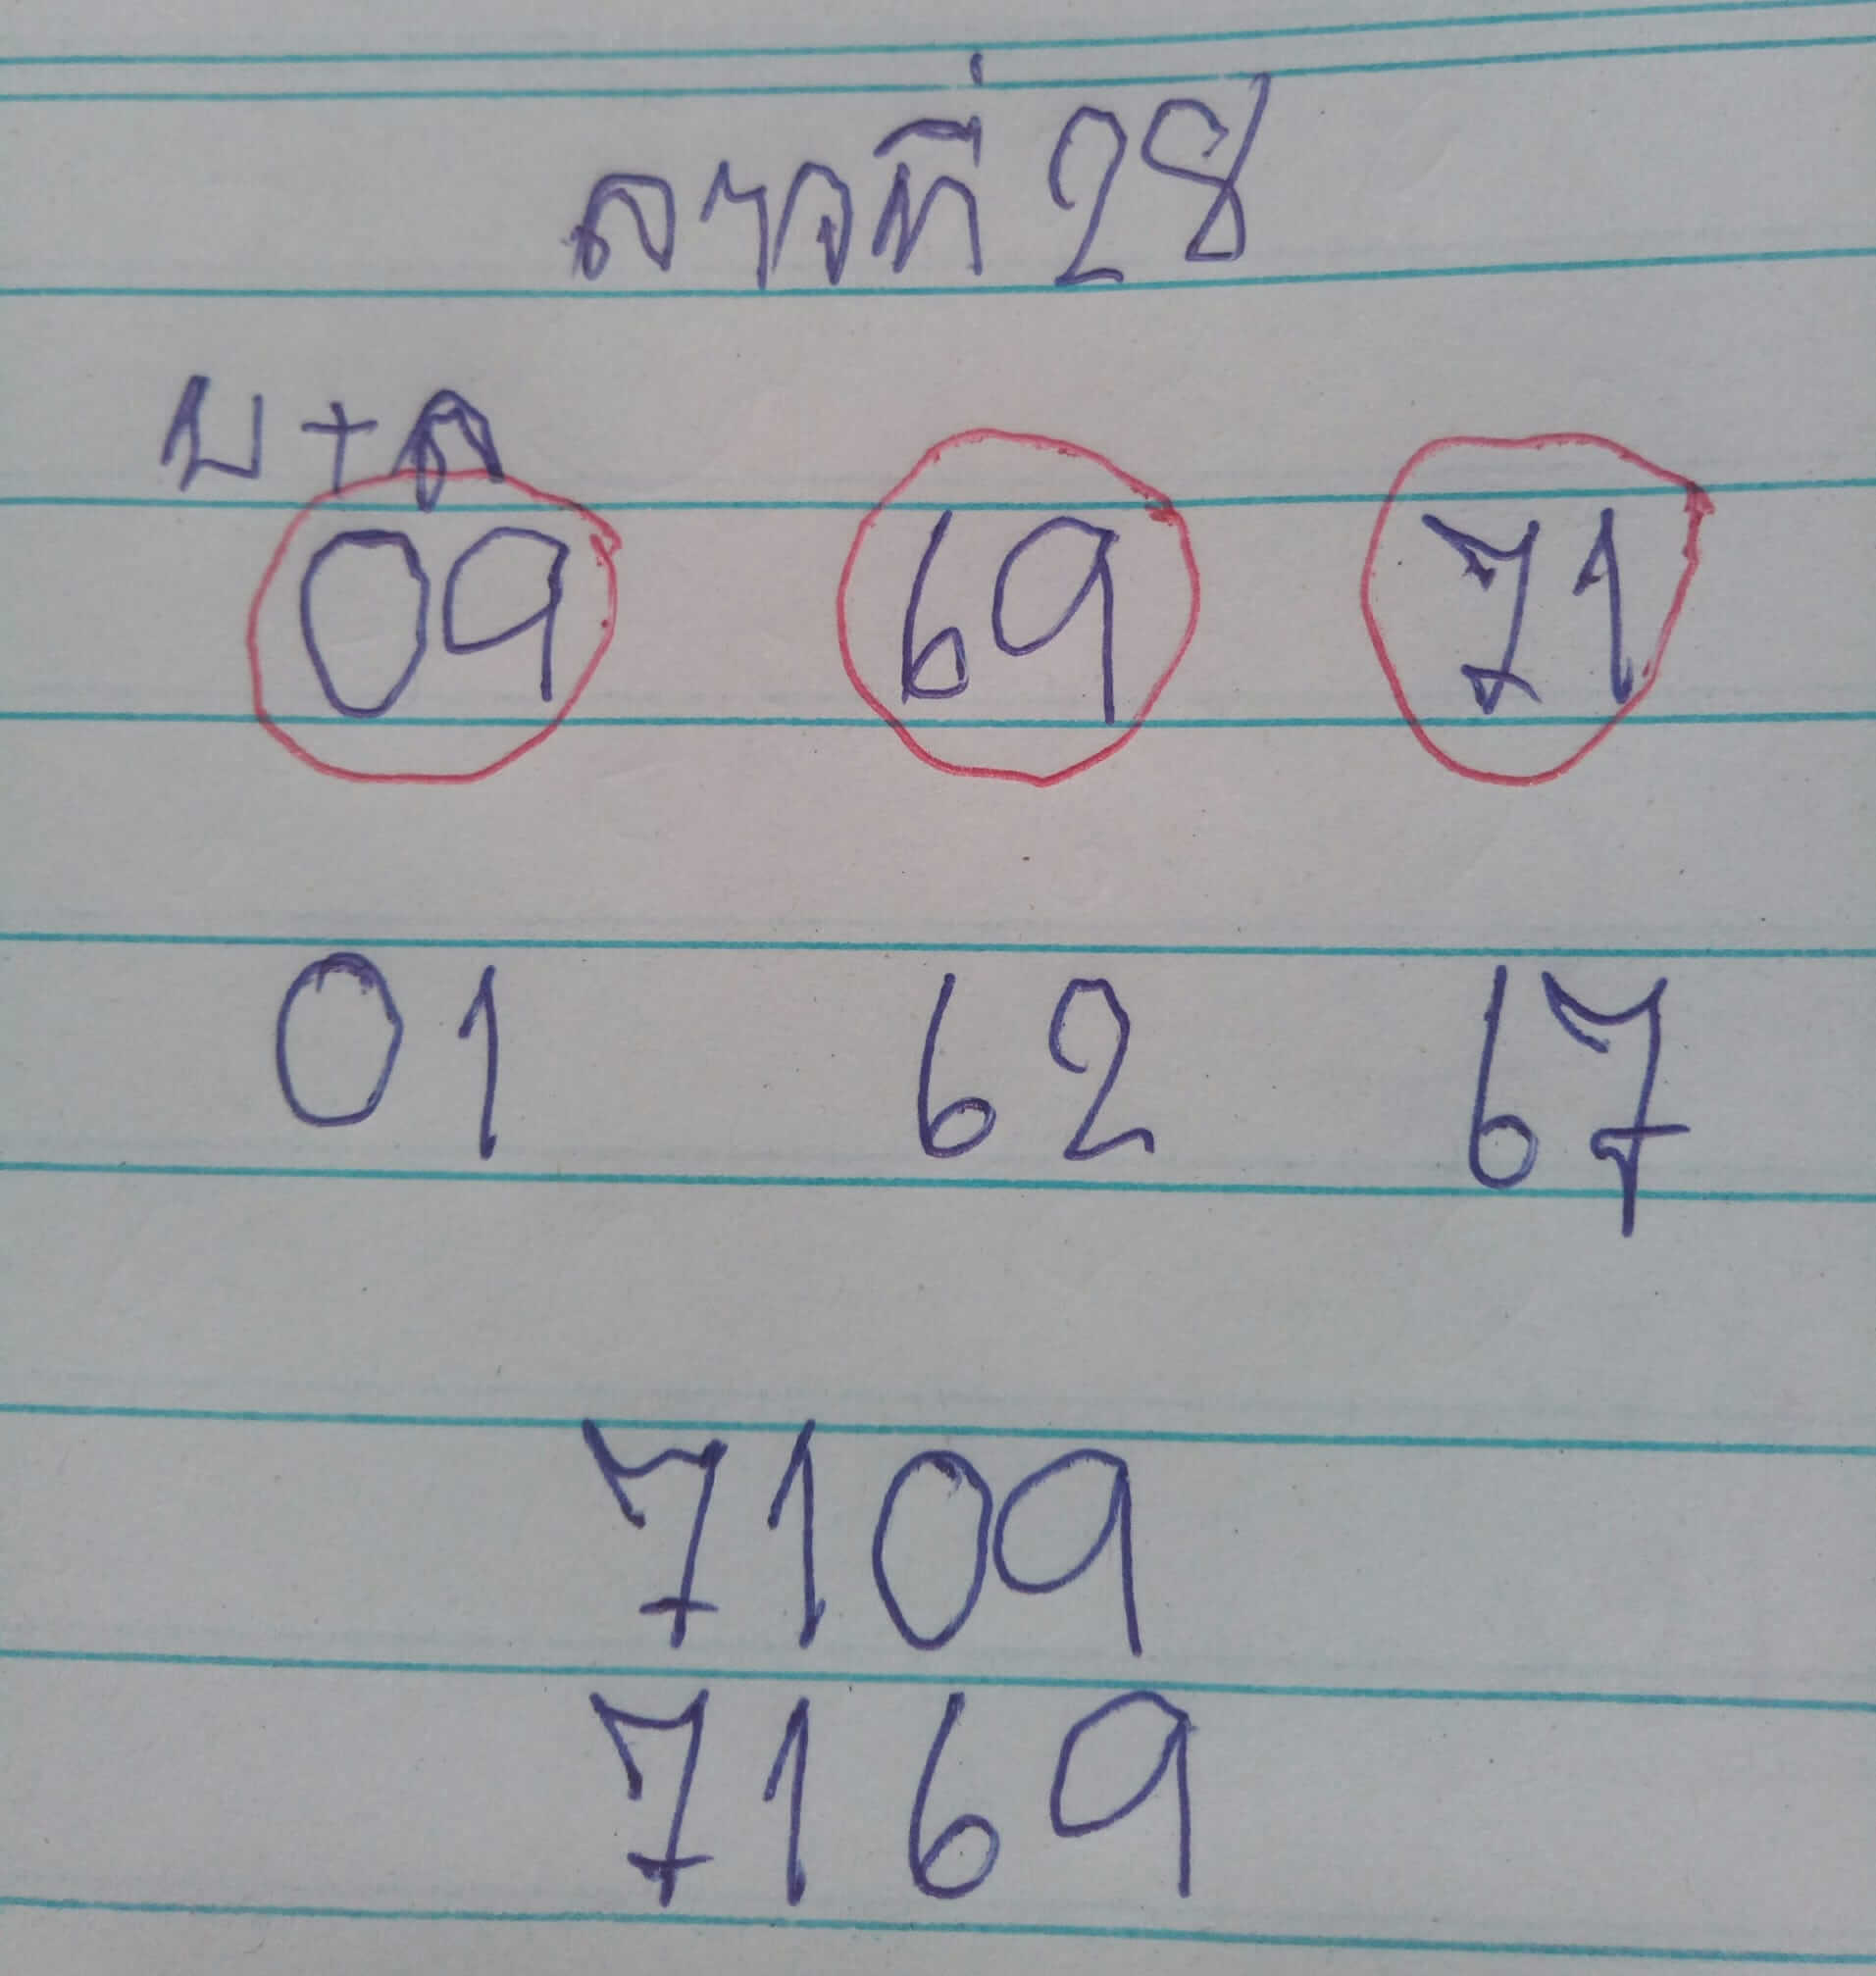 ลาวที่ 28
บ+ล
09 69 71
01 62 67
7109
7169